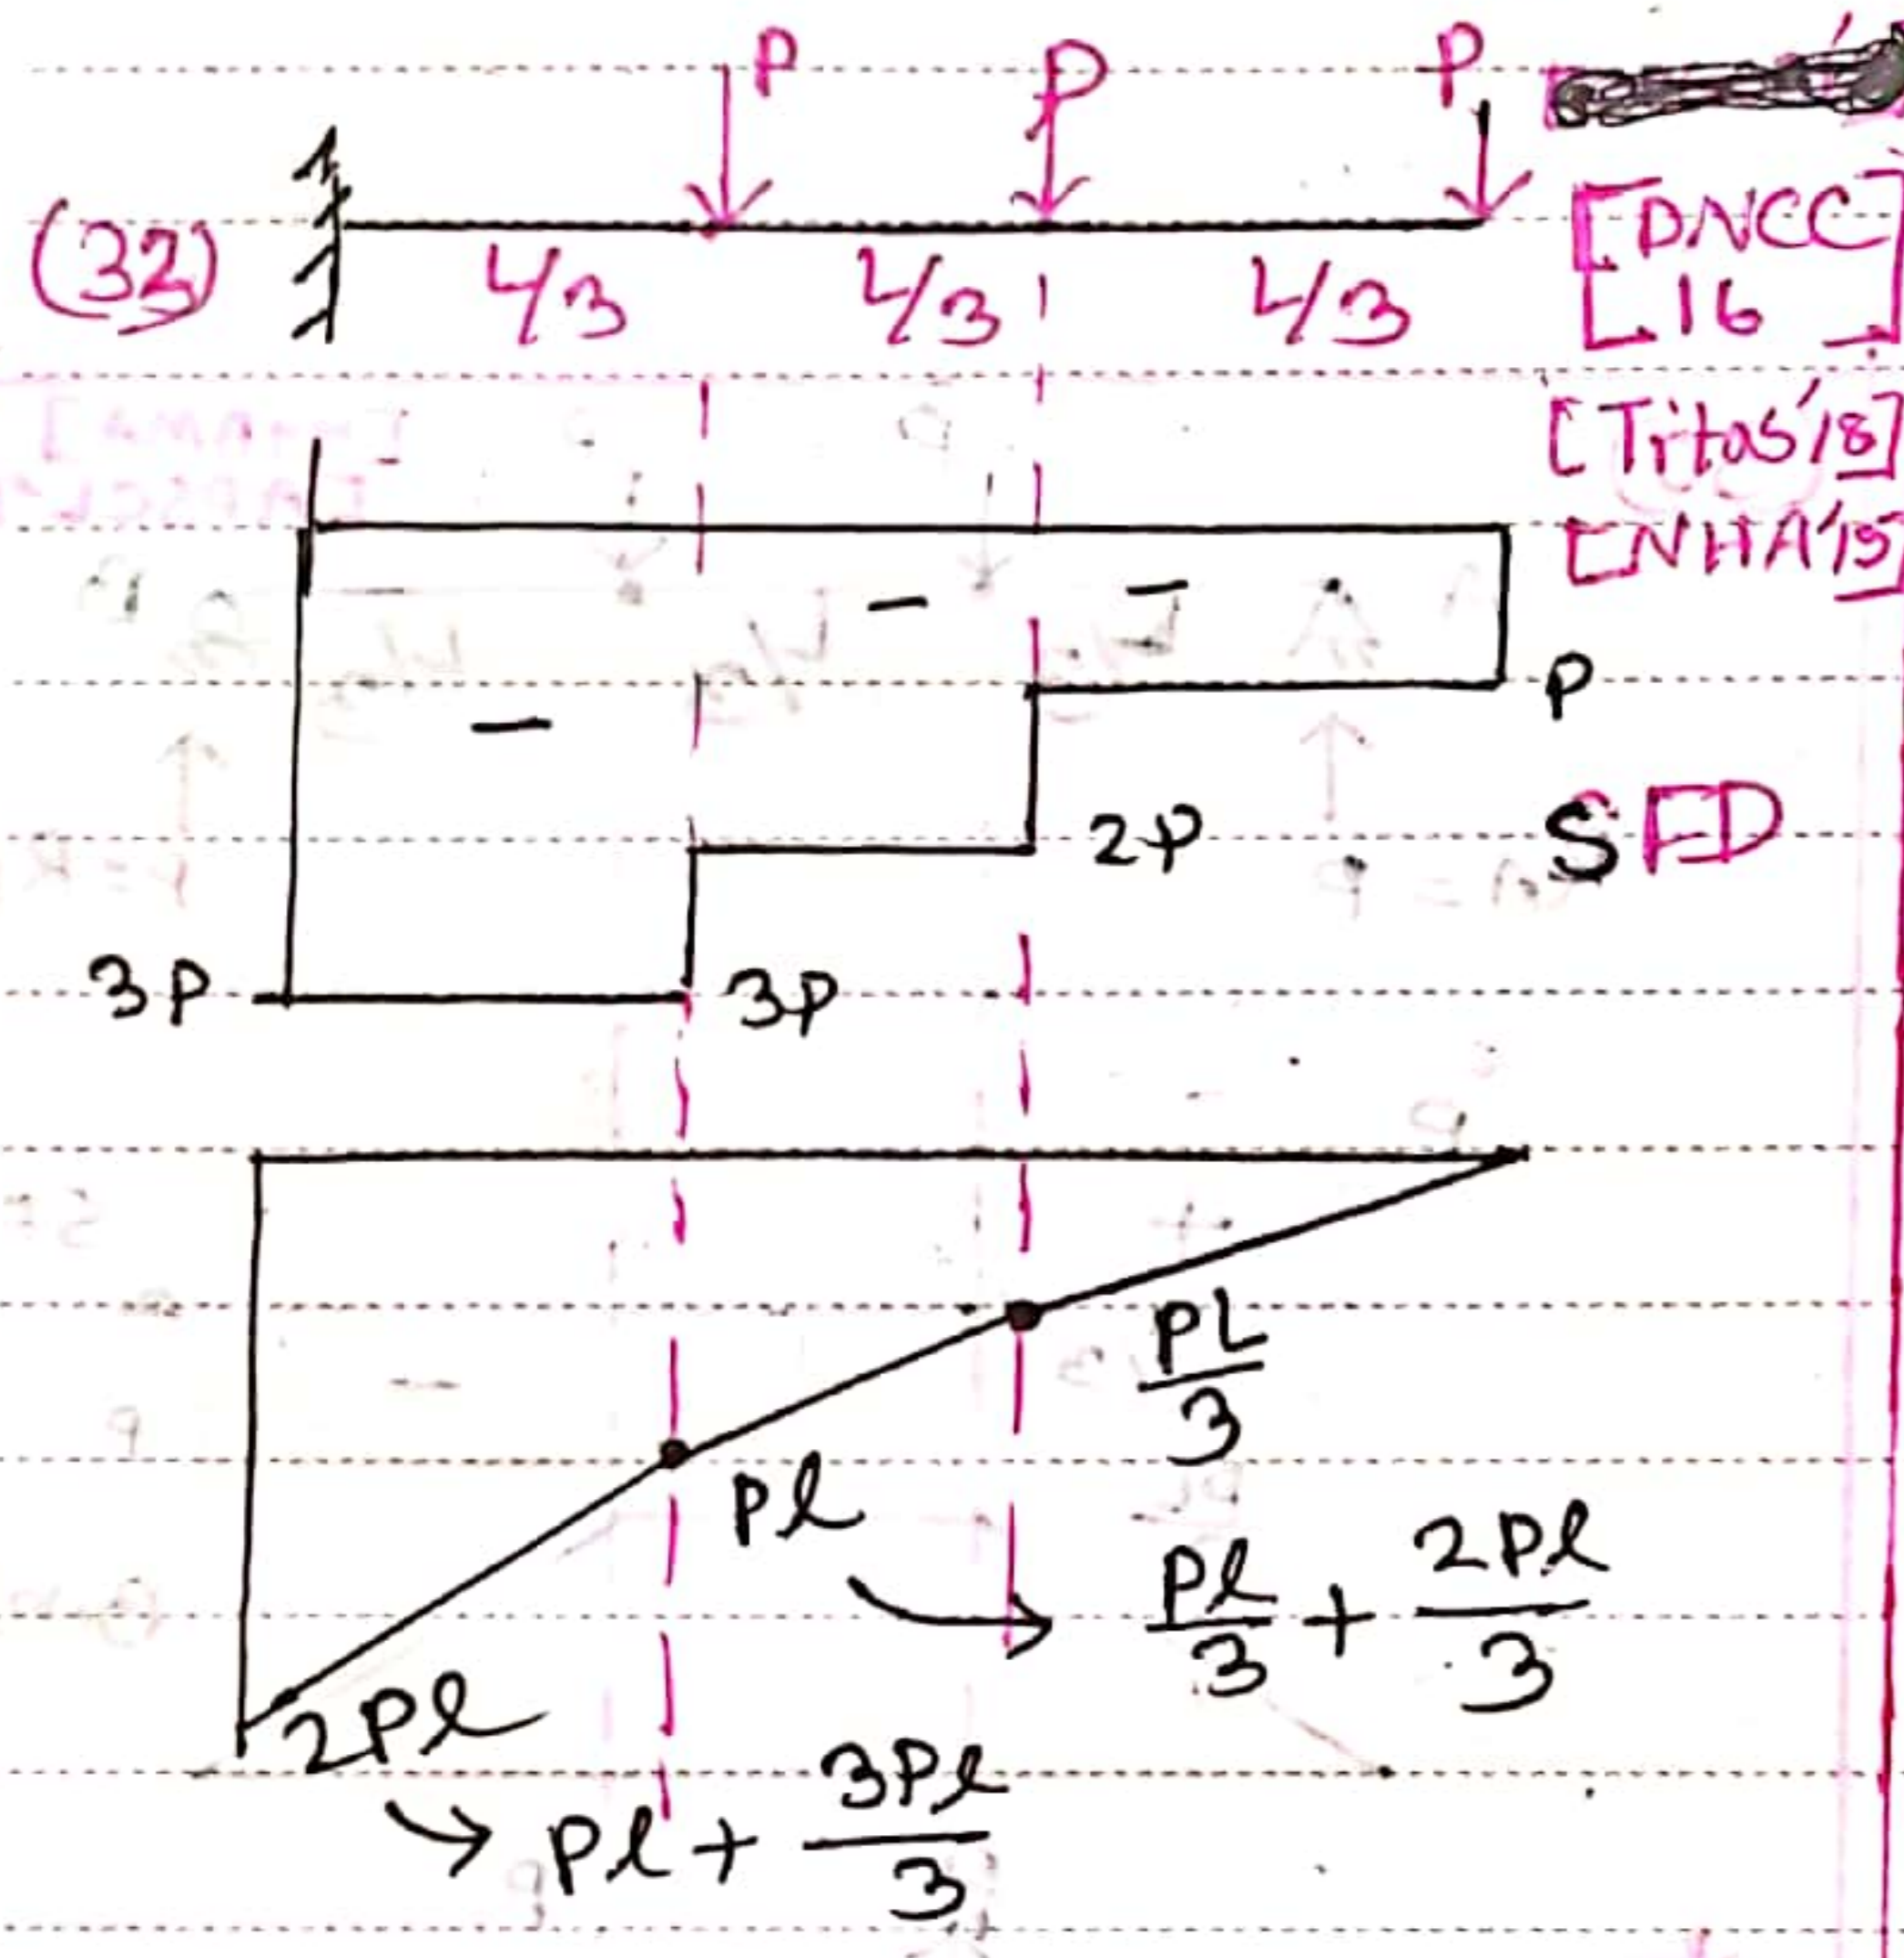 P P P
(32)
L/3 L/3 L/3
[DNCC
16]
[Titas'18]
[NHA'15]
- - -
P
2P
SFD
3P 3P
PL/3
Pl
Pl/3 + 2Pl/3
2Pl
Pl + 3Pl/3